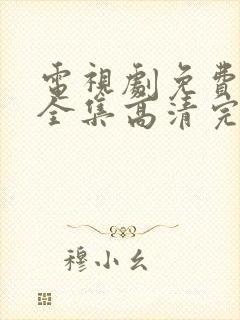 電視劇免費
全集高清完
穆小幺